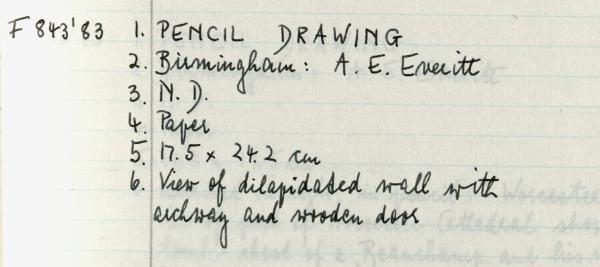 F 843'83 1. PENCIL DRAWING
2. Birmingham: A. E. Everitt
3. N.D.
4. Paper
5. 17.5 x 24.2 cm
6. View of dilapidated wall with
archway and wooden door